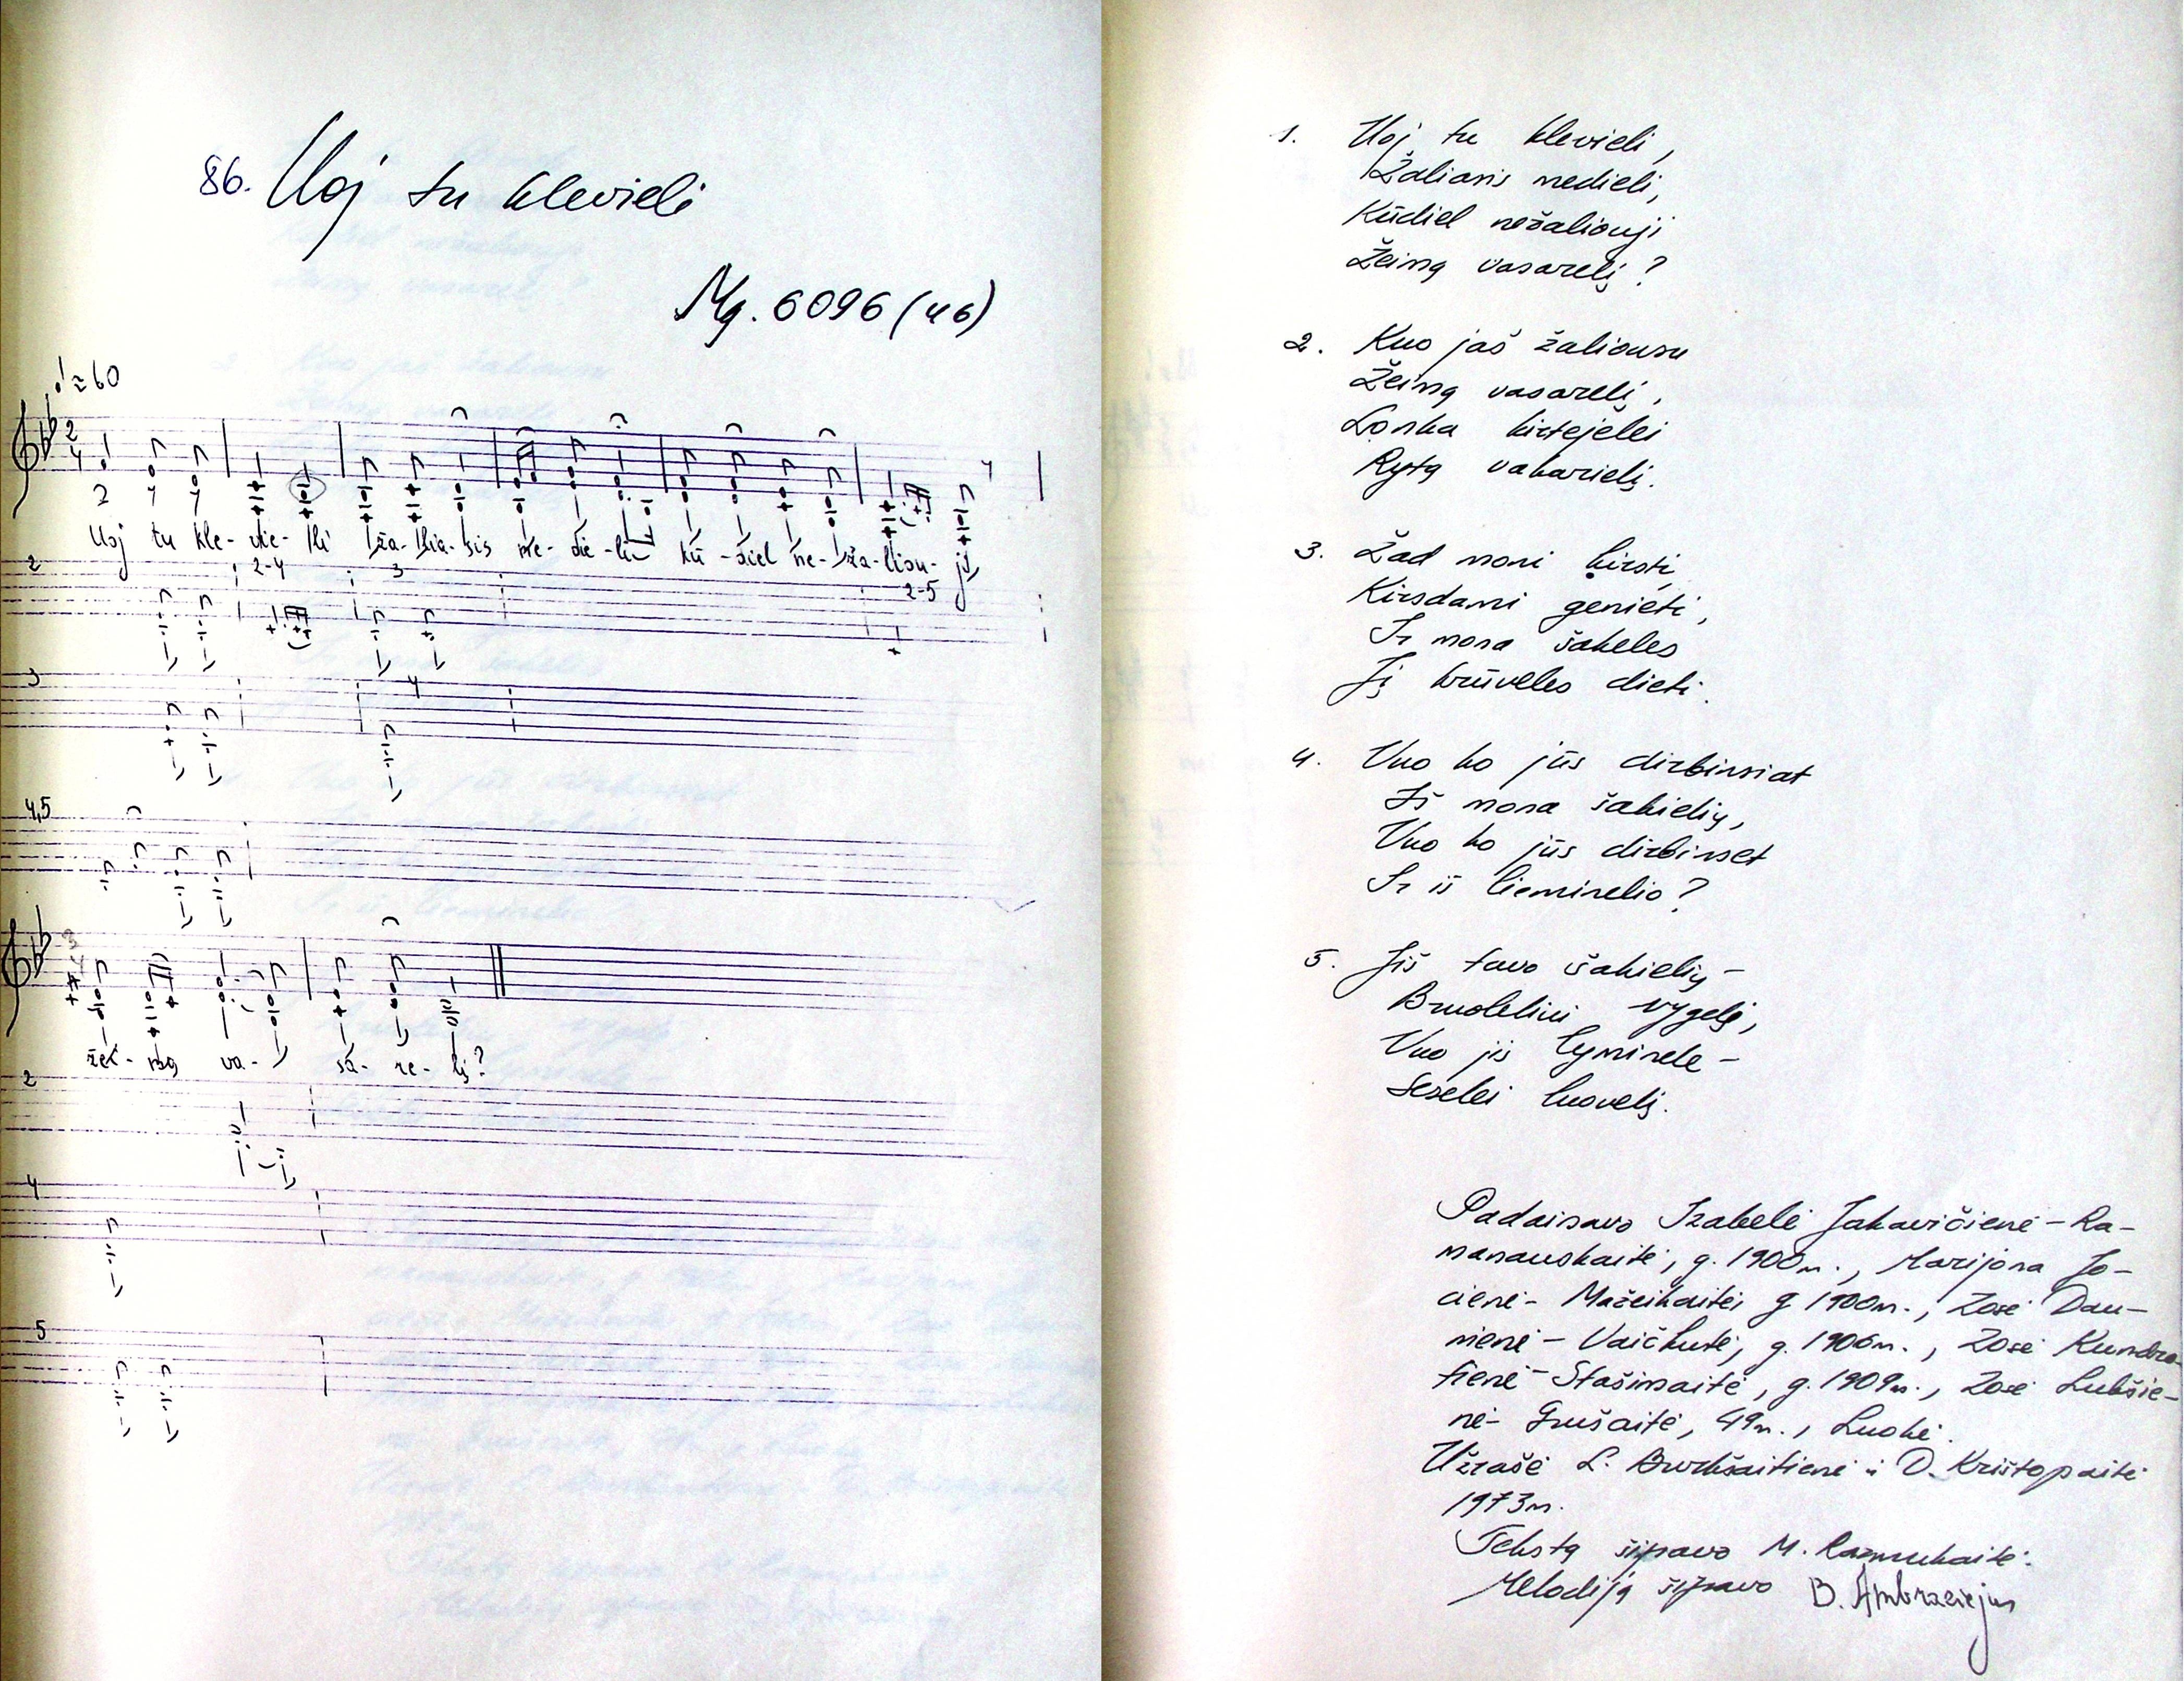 86. Uoj tu klevieli
Mg. 6096 (46)
♩≈60
2
4
2 4 4
Uoj tu kle- vie- li ža- lia- sis me- die- li kū- diel ne- ža- liou- ji,
2 2-4 3 2-5
3 4
4,5
3
4
žei- mą va- sa- re- lį?
2
4
5
1. Uoj tu klevieli,
Žaliasis medieli,
Kūdiel nežaliouji
Žeimą vasarelį?
2. Kuo jaš žaliousu
Žeimą vasarelį,
Lonka kirtejelei
Rytą vakarielį.
3. Žad moni kirsti,
Kirsdami genieti,
Ir mona šakeles
Jį krūveles dieti.
4. Vuo ko jūs dirbinsiat
Iš mona šakielių,
Vuo ko jūs dirbinset
Ir iš lieminelio?
5. Jiš tavo šakielių -
Bruoleliui vygelį,
Vuo jiš lyminele -
Seselei luovelį.
Padainavo Izabelė Jakavičienė - Ra-
manauskaitė, g. 1900 m., Marijona Jo-
cienė - Mažeikaitė, g 1900 m., Zosė Dau-
nienė - Vaičkutė, g. 1906 m., Zosė Kundro-
tienė - Stašinsaitė, g. 1909 m., Zosė Lukšie-
nė - Grušaitė, 49 m., Luokė.
Užrašė L. Burkšaitienė ir D. Krištopaitė
1973 m.
Tekstą šifravo M. Razmukaitė.
Melodiją šifravo B. Ambraziejus